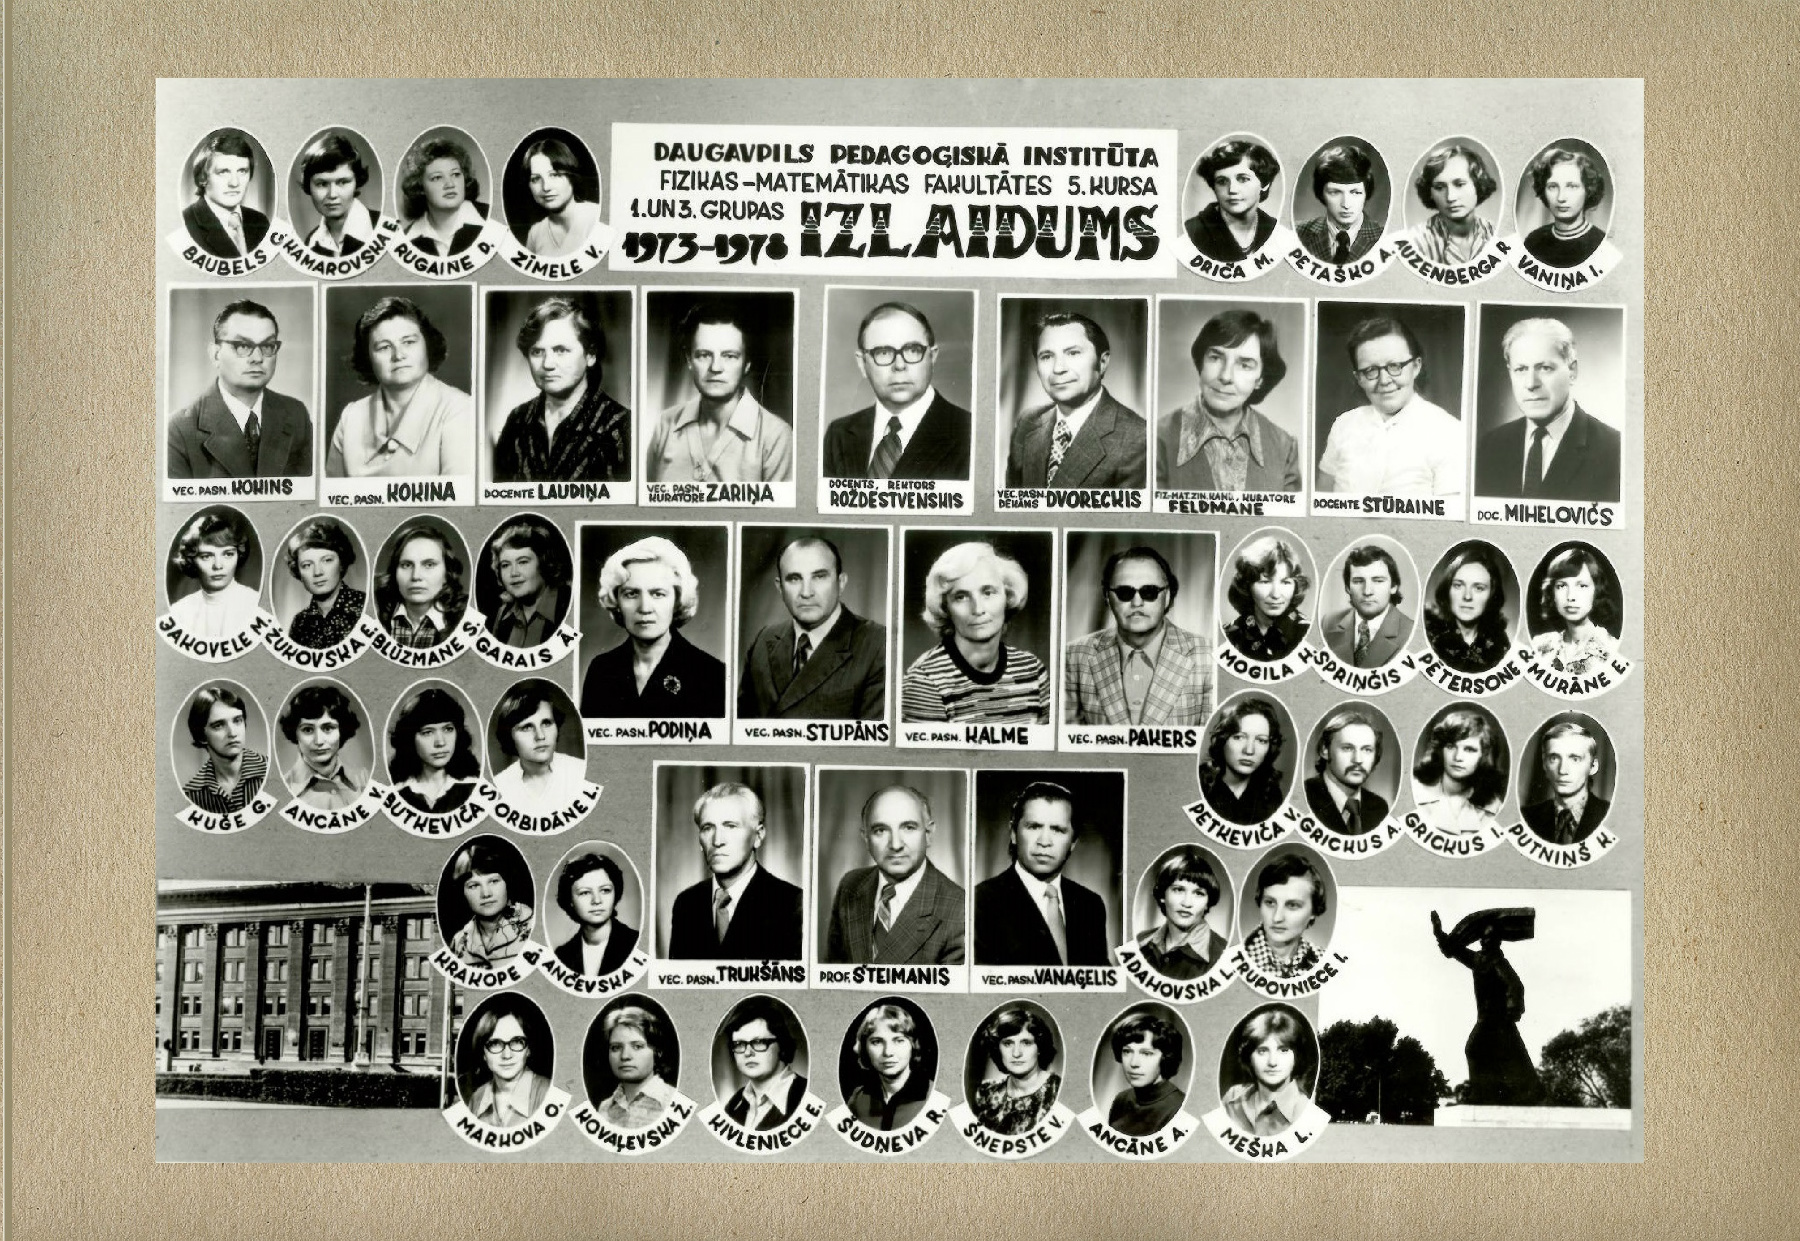 DAUGAVPILS PEDAGOĢISKĀ INSTITŪTA
FIZIKAS-MATEMĀTIKAS FAKULTĀTES 5. KURSA
1. UN 3. GRUPAS IZLAIDUMS
1973-1978
BAUBELS
KAMAROVSKA E.
RUGAINE D.
ZĪMELE V.
DRIČA M.
PETAŠKO A.
AUZENBERGA R
VANIŅA I.
VEC. PASN. KOKINS
VEC. PASN. KOKINA
DOCENTE LAUDIŅA
VEC. PASN.
KURATORE ZARIŅA
DOCENTS, REKTORS
ROŽDESTVENSKIS
VEC. PASN.
DEKĀNS DVORECKIS
FIZ-MAT.ZIN.KAND., KURATORE
FELDMANE
DOCENTE STŪRAINE
DOC. MIHELOVIČS
JAKOVELE M.
ŽUKOVSKA E.
BLŪZMANE S.
GARAIS Ā.
MOGILA
SPRIŅĢIS V.
PĒTERSONE R.
MURĀNE E.
VEC. PASN. PODIŅA
VEC. PASN. STUPĀNS
VEC. PASN. KALME
VEC. PASN. PAKERS
KUĢE G.
ANCĀNE V.
BUTKEVIČA S
ORBIDĀNE L.
PETKEVIČA V.
GRICKUS A.
GRICKUS I.
PUTNIŅŠ K.
KRAKOPE
ANČEVSKA I.
VEC. PASN. TRUKŠĀNS
PROF. ŠTEIMANIS
VEC. PASN. VANAĢELIS
ADAHOVSKA L.
TRUPOVNIECE I.
MARKOVA O.
KOVAĻEVSKA Ž.
KIVLENIECE E.
ŠUDŅEVA R.
ŠŅEPSTE V.
ANCĀNE A.
MEŠKA L.